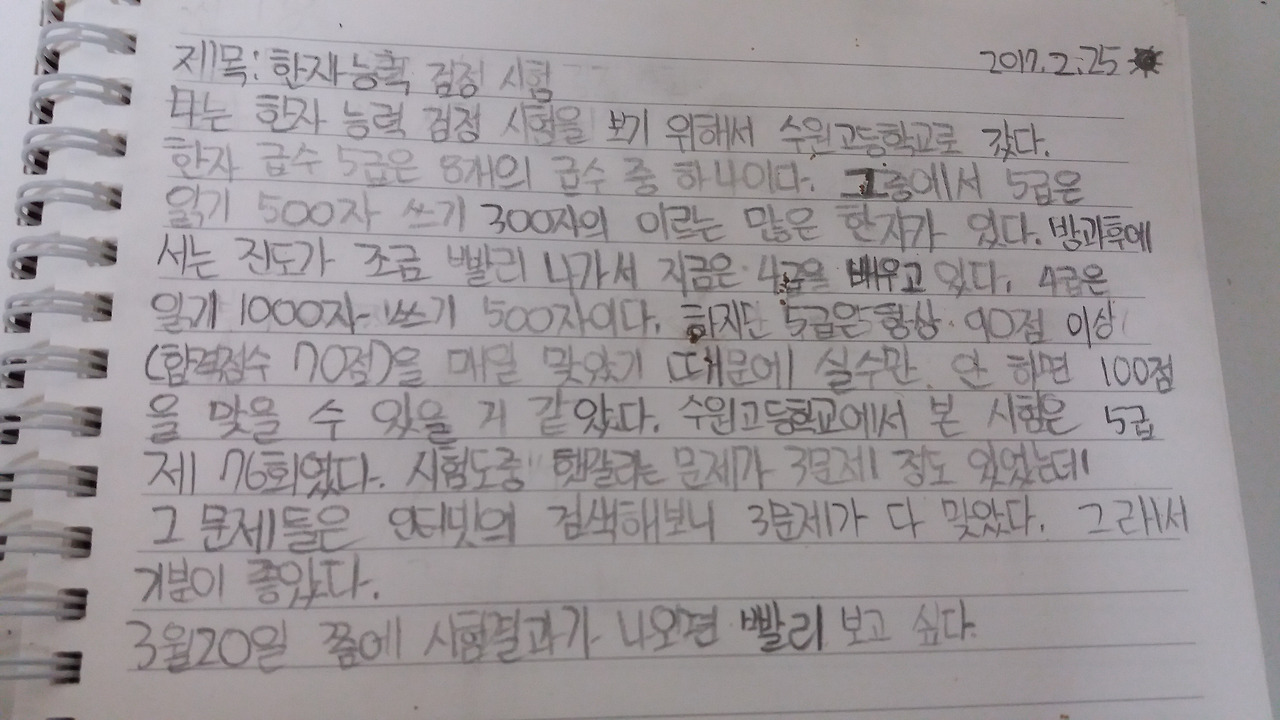 제목: 한자능력 검정 시험 2017.2.25
나는 한자 능력 검정 시험을 보기 위해서 수원고등학교로 갔다.
한자 급수 5급은 8개의 급수 중 하나이다. 그중에서 5급은
읽기 500자 쓰기 300자의 이르는 많은 한자가 있다. 방과후에
서는 진도가 조금 빨리 나가서 지금은 4급을 배우고 있다. 4급은
읽기 1000자 쓰기 500자이다. 하지만 5급은 항상 90점 이상
(합격점수 70점)을 매일 맞았기 때문에 실수만 안 하면 100점
을 맞을 수 있을 거 같았다. 수원고등학교에서 본 시험은 5급
제 76회였다. 시험도중 햇말리는 문제가 3문제 정도 있었는데
그 문제들은 인터넷의 검색해보니 3문제가 다 맞았다. 그래서
기분이 좋았다.
3월20일 쯤에 시험결과가 나오면 빨리 보고 싶다.